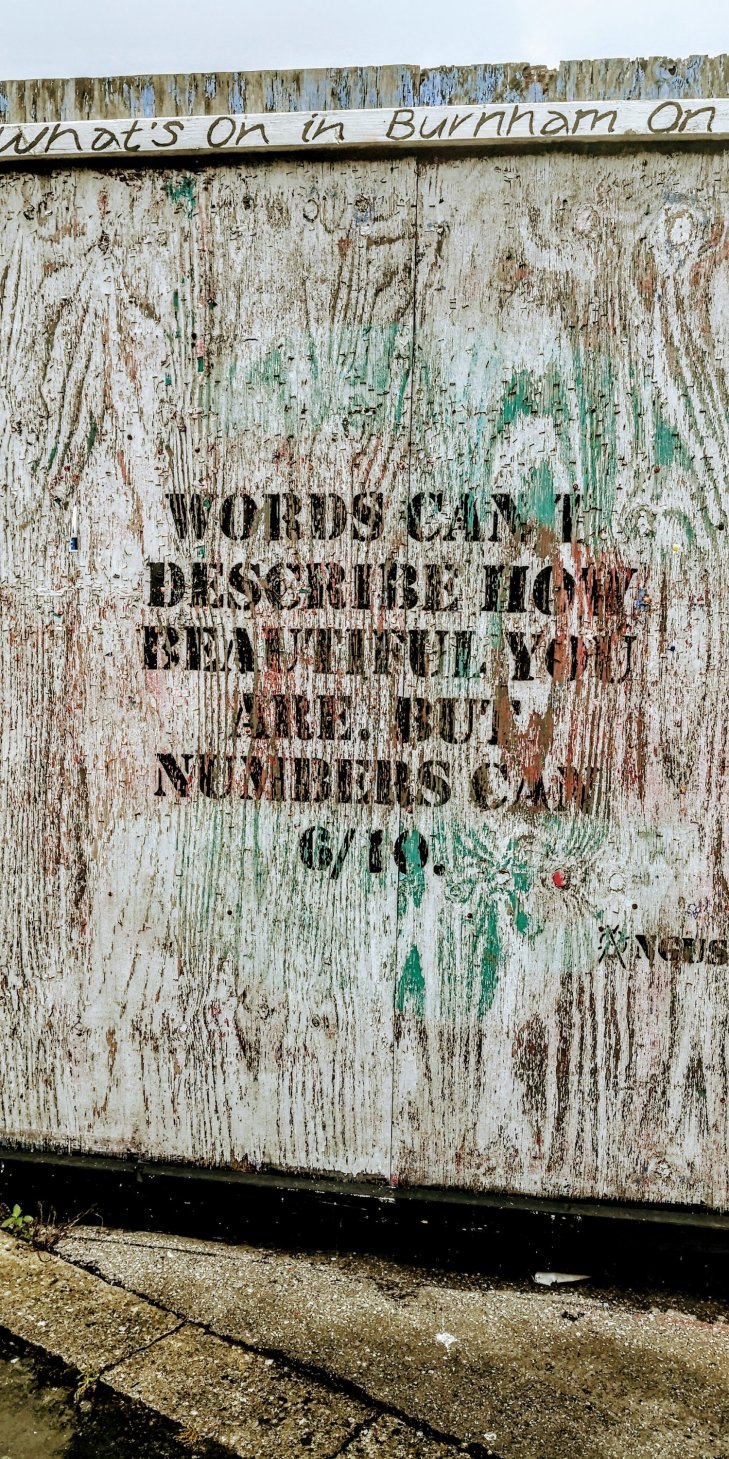 What's On in Burnham On
WORDS CAN'T
DESCRIBE HOW
BEAUTIFUL YOU
ARE. BUT
NUMBERS CAN
6/10.
ANGUS